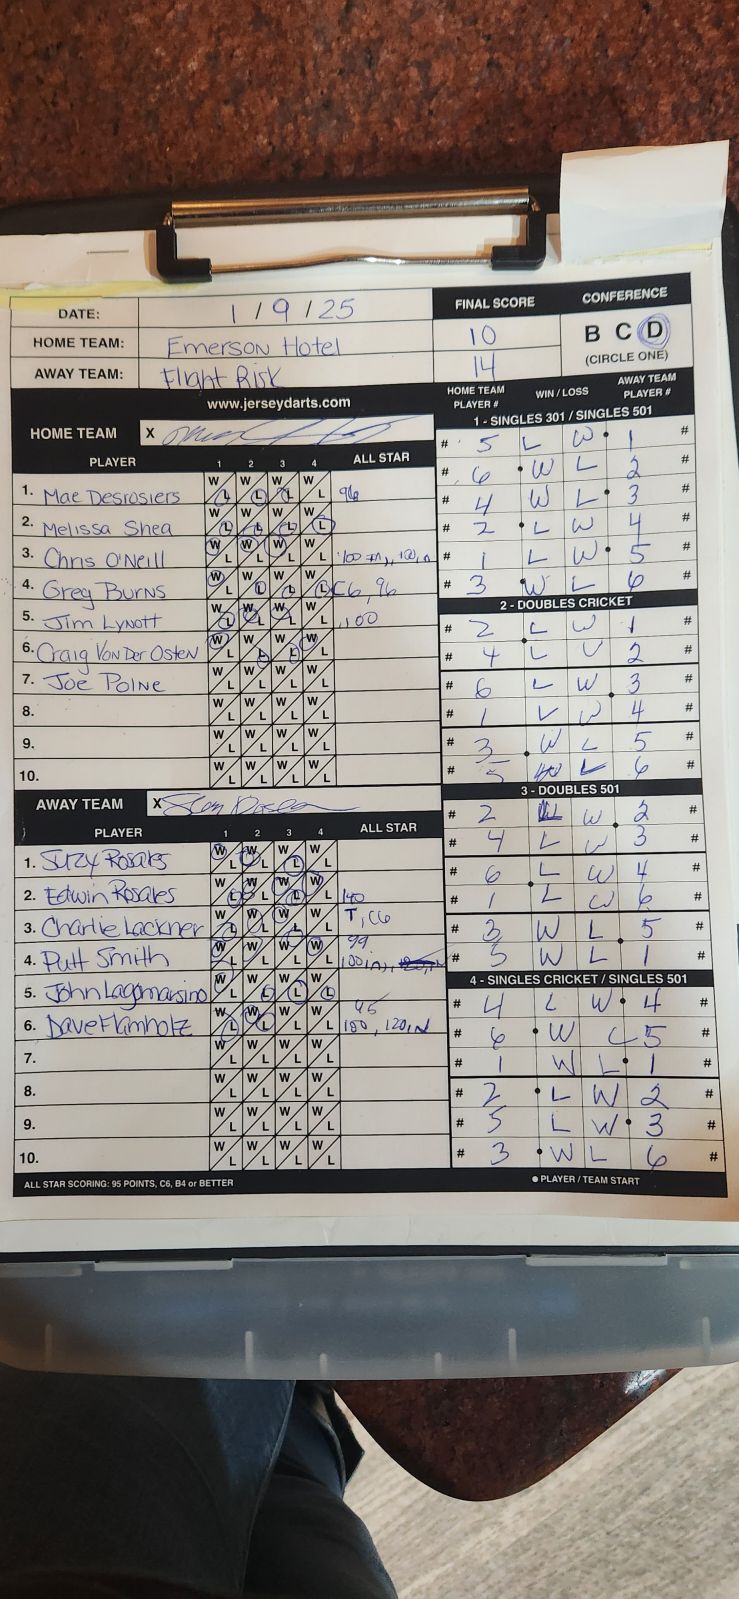 DATE: 1/9/25
HOME TEAM: Emerson Hotel
AWAY TEAM: Flight Risk
FINAL SCORE
10
14
CONFERENCE
B C D
(CIRCLE ONE)
www.jerseydarts.com
HOME TEAM X
PLAYER 1 2 3 4 ALL STAR
1. Mae Desrosiers W L W L W L W L 96
2. Melissa Shea W L W L W L W L
3. Chris O'Neill W L W L W L W L 100 in,
4. Greg Burns W L W L W L W L C6, 96
5. Jim Lynott W L W L W L W L 100
6. Craig Von Der Osten W L W L W L W L
7. Joe Poline W L W L W L W L
8. W L W L W L W L
9. W L W L W L W L
10. W L W L W L W L
AWAY TEAM X
PLAYER 1 2 3 4 ALL STAR
1. Suzy Rosales W L W L W L W L
2. Edwin Rosales W L W L W L W L 140
3. Charlie Lackner W L W L W L W L T, C6
4. Putt Smith W L W L W L W L 99 100 in,
5. John Lagomarsino W L W L W L W L
6. Dave Flamholtz W L W L W L W L 95 100, 120, in
7. W L W L W L W L
8. W L W L W L W L
9. W L W L W L W L
10. W L W L W L W L
ALL STAR SCORING: 95 POINTS, C6, B4 or BETTER
HOME TEAM PLAYER # WIN / LOSS AWAY TEAM PLAYER #
1 - SINGLES 301 / SINGLES 501
# 5 L W 1 #
# 6 W L 2 #
# 4 W L 3 #
# 2 L W 4 #
# 1 L W 5 #
# 3 W L 6 #
2 - DOUBLES CRICKET
# 2 L W 1 #
# 4 L W 2 #
# 6 L W 3 #
# 1 L W 4 #
# 3 W L 5 #
# 5 W L 6 #
3 - DOUBLES 501
# 2 L W 2 #
# 4 L W 3 #
# 6 L W 4 #
# 1 L W 6 #
# 3 W L 5 #
# 5 W L 1 #
4 - SINGLES CRICKET / SINGLES 501
# 4 L W 4 #
# 6 W L 5 #
# 1 W L 1 #
# 2 L W 2 #
# 5 L W 3 #
# 3 W L 6 #
● PLAYER / TEAM START